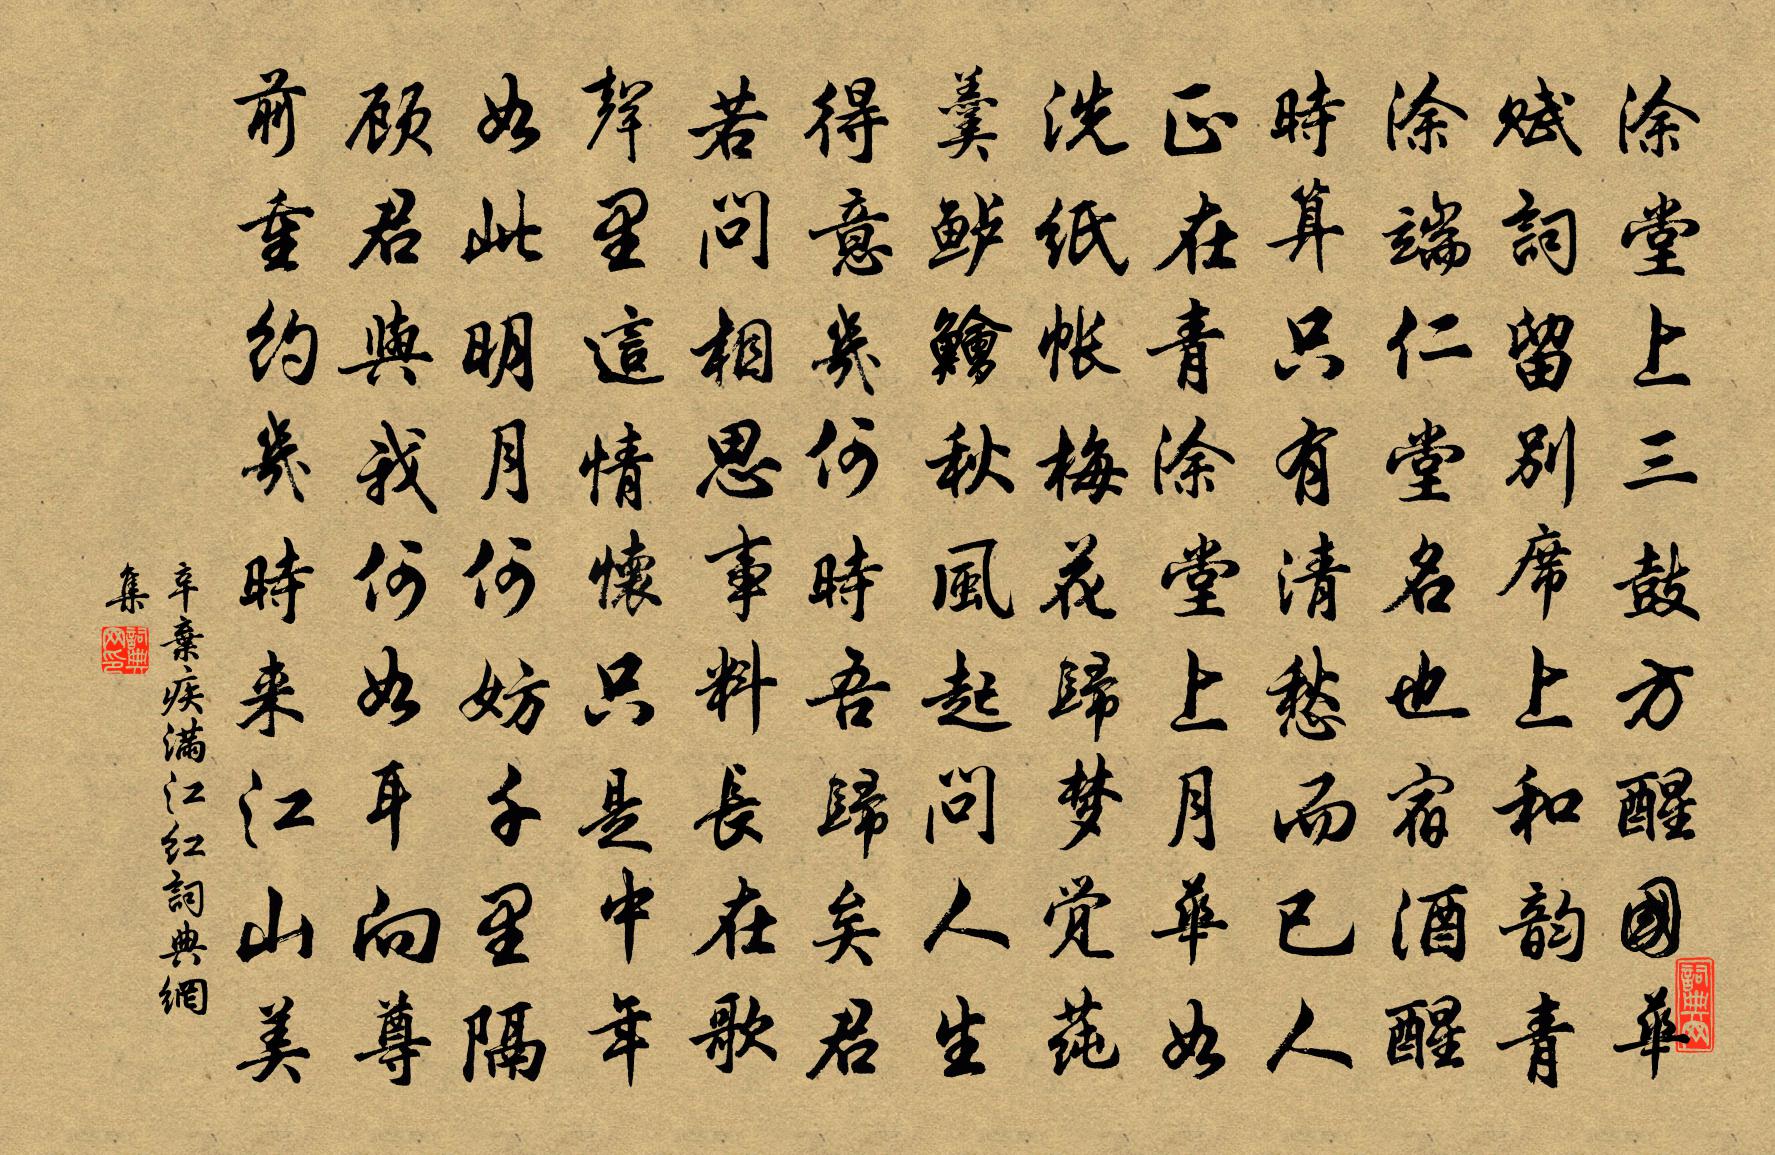 涂堂上三鼓方醒國華
賦詞留別席上和韵青
涂端仁堂名也宿酒醒
時算只有清愁而已人
正在青涂堂上月華如
洗纸帐梅花歸梦觉莼
羹鲈鱠秋風起問人生
得意幾何時吾歸矣君
若問相思事料長在歌
聲里這情懷只是中年
如此明月何妨千里隔
顾君與我何如耳向尊
前重约幾時来江山美
辛棄疾满江红詞典網
集
詞典网
詞典网印